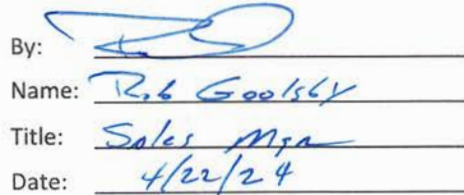 By:
Name: Rob Goolsby
Title: Sales Mgr
Date: 4/22/24